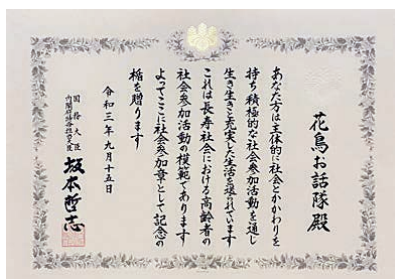 花鳥お話隊 殿
あなた方は主体的に社会とかかわりを
持ち積極的な社会参加活動を通じ
生き生きと充実した生活を送られています
これは長寿社会における高齢者の
社会参加活動の模範であります
よってここに社会参加章として記念の
楯を贈ります
令和三年九月十五日
国務大臣
坂本哲志